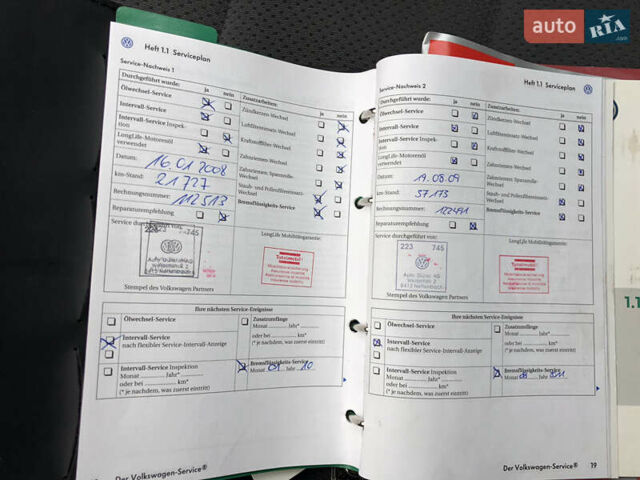 auto RIA
.com
Heft 1.1 Serviceplan
Service-Nachweis 1
Durchgeführt wurde: ja nein Zusatzarbeiten: ja nein
Ölwechsel-Service
Zündkerzen-Wechsel
Intervall-Service
Luftfiltereinsatz-Wechsel
Intervall-Service Inspek-
tion
Kraftstofffilter-Wechsel
LongLife-Motorenöl
verwendet
Zahnriemen-Wechsel
Datum: 16.01.2008
Zahnriemen-Spannrolle-
Wechsel
km-Stand: 21727
Staub- und Pollenfiltereinsatz-
Wechsel
Rechnungsnummer: 112513
Bremsflüssigkeits-Service
Reparaturempfehlung
Service durchgeführt von:
LongLife Mobilitätsgarantie:
223 745
Totalmobil!
Stempel des Volkswagen Partners
Ihre nächsten Service-Ereignisse
Ölwechsel-Service
Zusatzumfänge
Monat ........ Jahr*........
oder bei ........ km*
(* je nachdem, was zuerst eintritt)
Intervall-Service
nach flexibler Service-Intervall-Anzeige
Intervall-Service Inspektion
Monat ........ Jahr*........
oder bei ........ km*
(* je nachdem, was zuerst eintritt)
Bremsflüssigkeits-Service
Monat 01 Jahr 10
Der Volkswagen-Service®
Heft 1.1 Serviceplan
Service-Nachweis 2
Durchgeführt wurde: ja nein Zusatzarbeiten: ja nein
Ölwechsel-Service
Zündkerzen-Wechsel
Intervall-Service
Luftfiltereinsatz-Wechsel
Intervall-Service Inspek-
tion
Kraftstofffilter-Wechsel
LongLife-Motorenöl
verwendet
Zahnriemen-Wechsel
Datum: 19.08.09
Zahnriemen-Spannrolle-
Wechsel
km-Stand: 57175
Staub- und Pollenfiltereinsatz-
Wechsel
Rechnungsnummer: 122491
Bremsflüssigkeits-Service
Reparaturempfehlung
Service durchgeführt von:
LongLife Mobilitätsgarantie:
223 745
Totalmobil!
Stempel des Volkswagen Partners
Ihre nächsten Service-Ereignisse
Ölwechsel-Service
Zusatzumfänge
Monat ........ Jahr*........
oder bei ........ km*
(* je nachdem, was zuerst eintritt)
Intervall-Service
nach flexibler Service-Intervall-Anzeige
Intervall-Service Inspektion
Monat ........ Jahr*........
oder bei ........ km*
(* je nachdem, was zuerst eintritt)
Bremsflüssigkeits-Service
Monat 08 Jahr 2011
Der Volkswagen-Service®
19
1.1